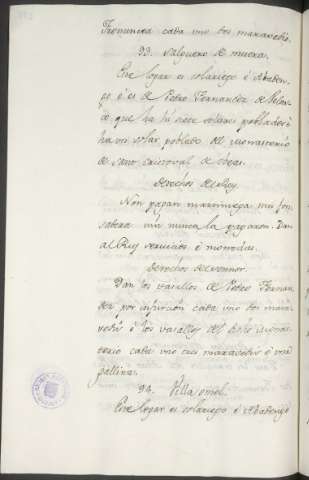 Fonsadera cada vno dos maravedis.
93. Salguero de nuera.
Este logar es solariego é Abaden-
go é es de Pedro Fernandez de Velas-
co que ha hi siete solares poblados é
ha vn solar poblado del monasterio
de Sant Cristoval de Ibeas.
Derechos del Rey.
Non pagan martiniega nin fon-
sadera nin nunca la pagaron. Dan
al Rey servicios é monedas.
Derechos del Sennor.
Dan los vasallos de Pedro Fernan-
dez por infurcion cada vno dos mara-
vedis é los vasallos del dicho monas-
terio cada vno seis maravedis é vna
gallina.
94. Villa omel.
Este logar es solariego é Abadengo